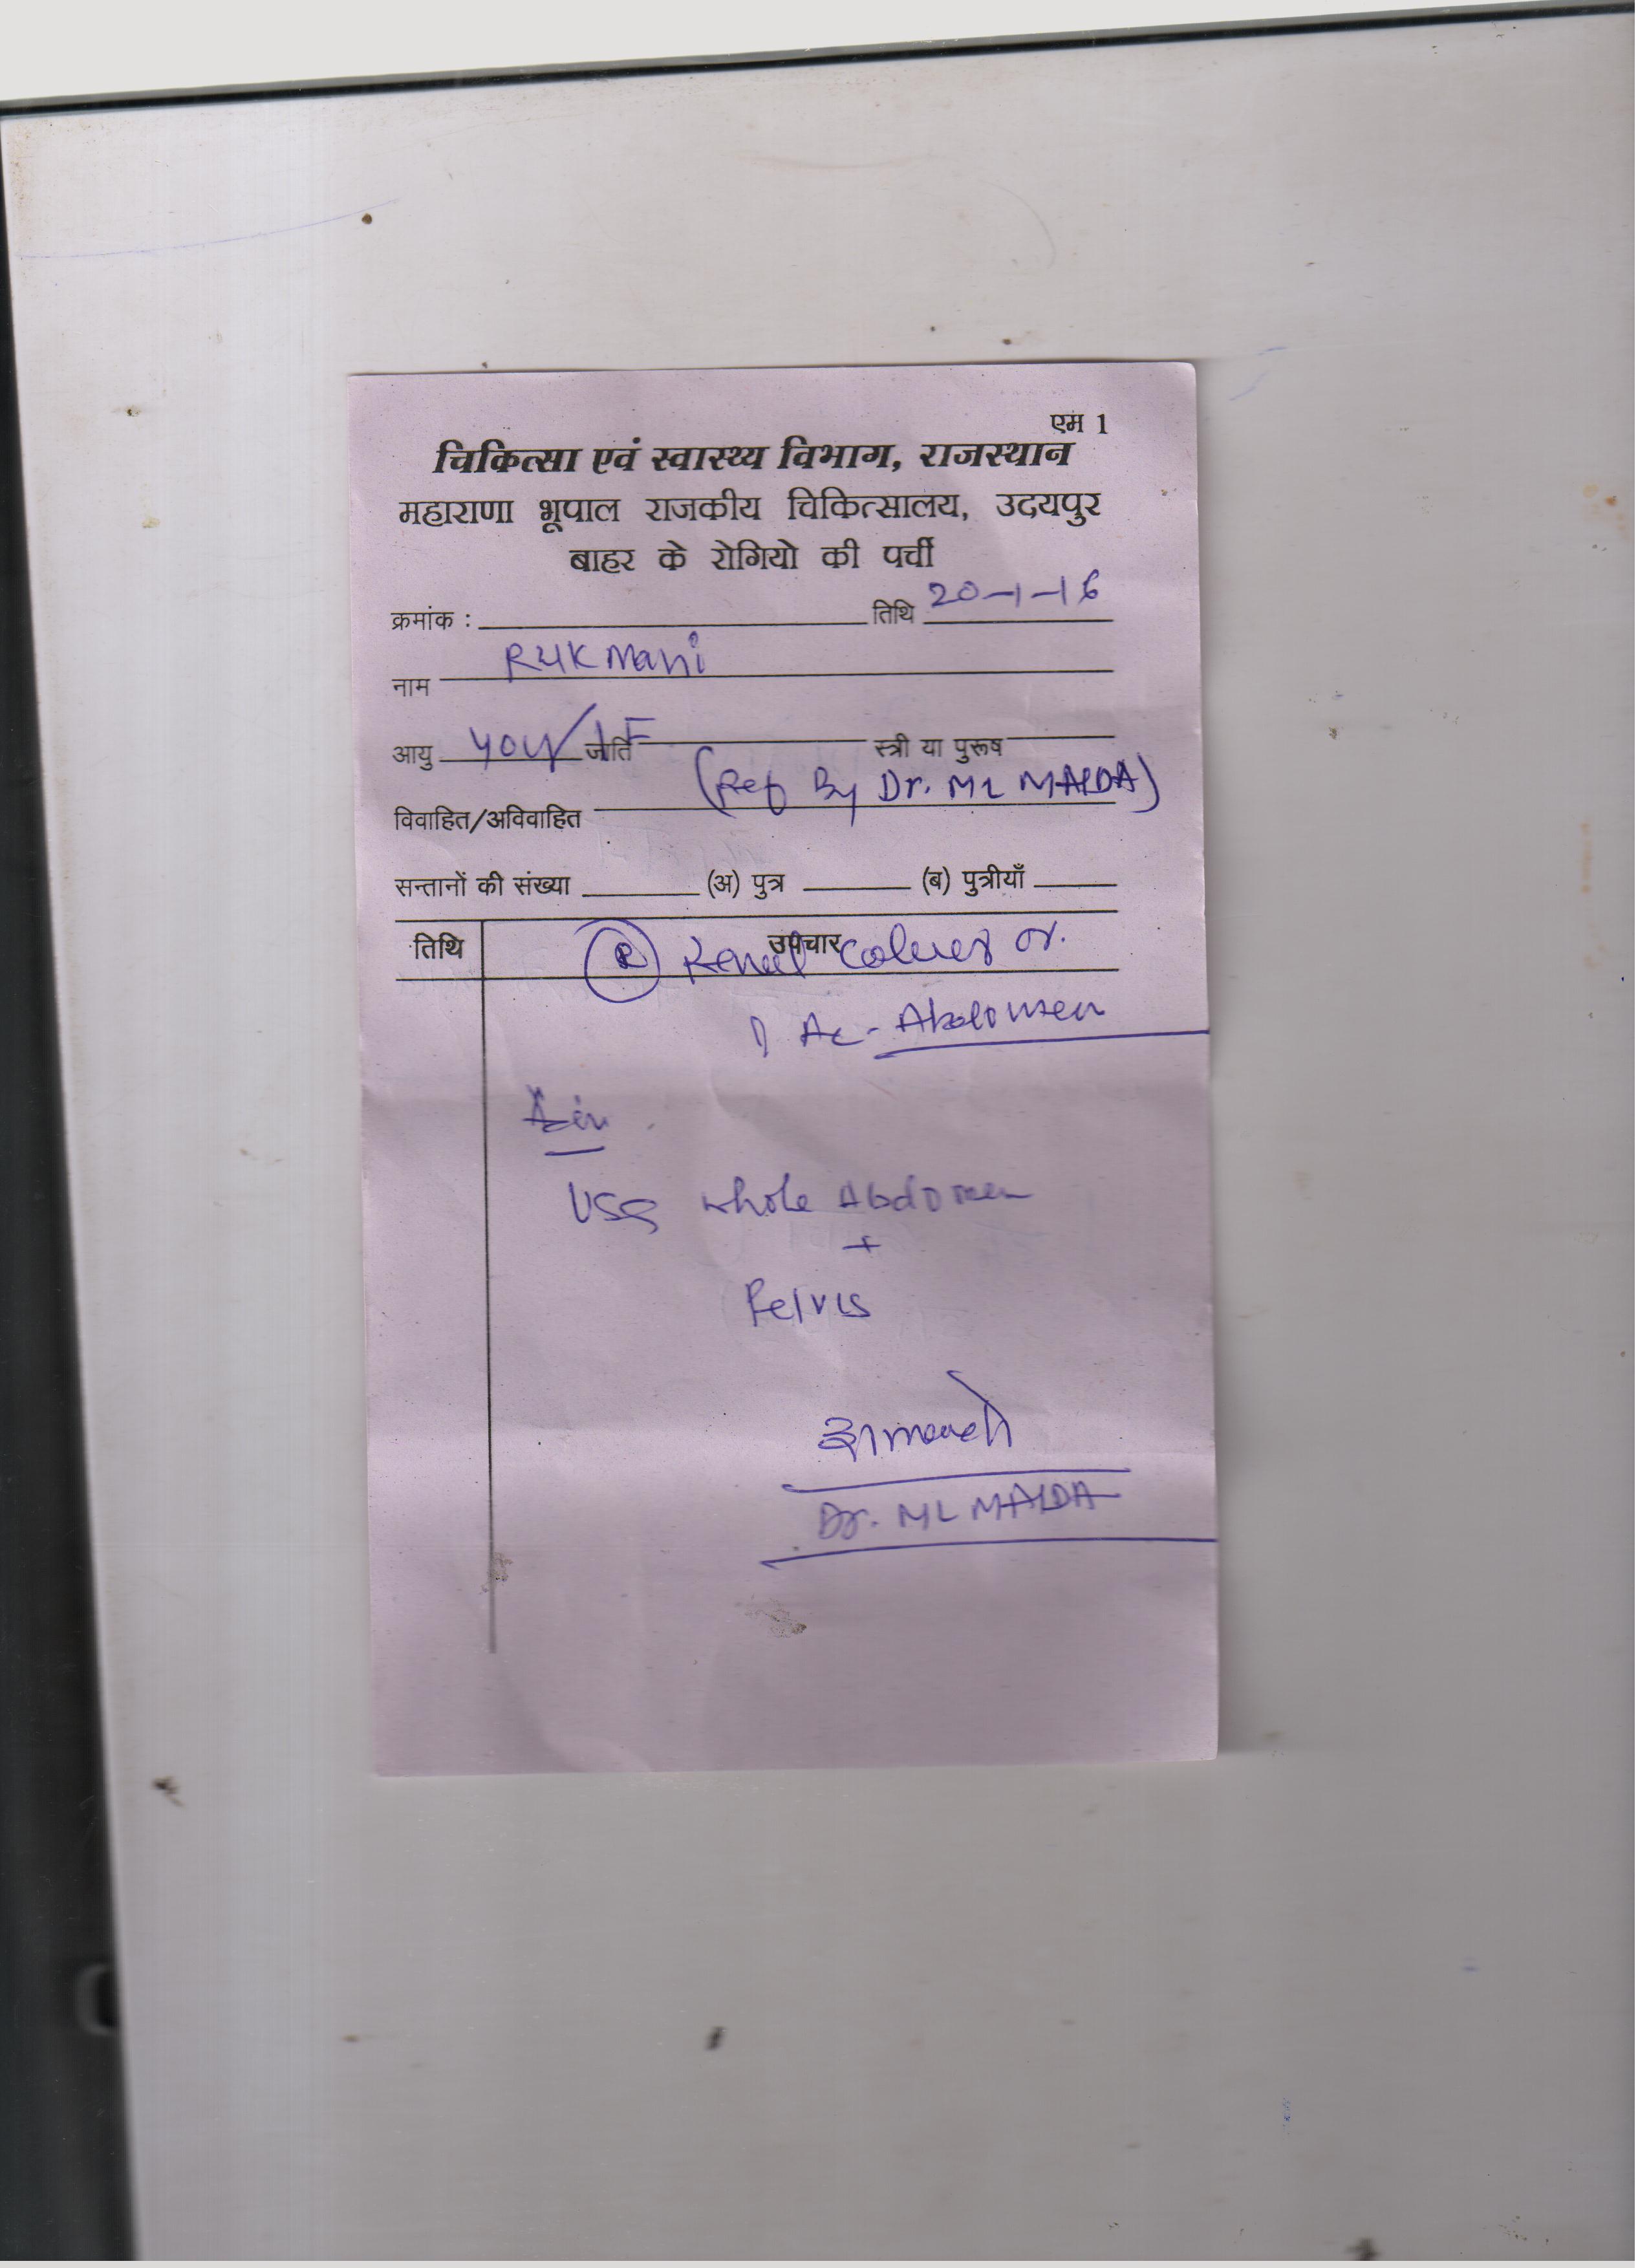 एम 1
चिकित्सा एवं स्वास्थ्य विभाग, राजस्थान
महाराणा भूपाल राजकीय चिकित्सालय, उदयपुर
बाहर के रोगियो की पर्ची
क्रमांक : तिथि 20-1-16
नाम Rukmani
आयु 40y/F जाति स्त्री या पुरूष
(Ref By Dr. ML MALDA)
विवाहित/अविवाहित
सन्तानों की संख्या (अ) पुत्र (ब) पुत्रीयाँ
तिथि उपचार
(R) Renal
Ac- Abdomen
USG whole Abdomen
+
Pelvis
Dr. ML MALDA